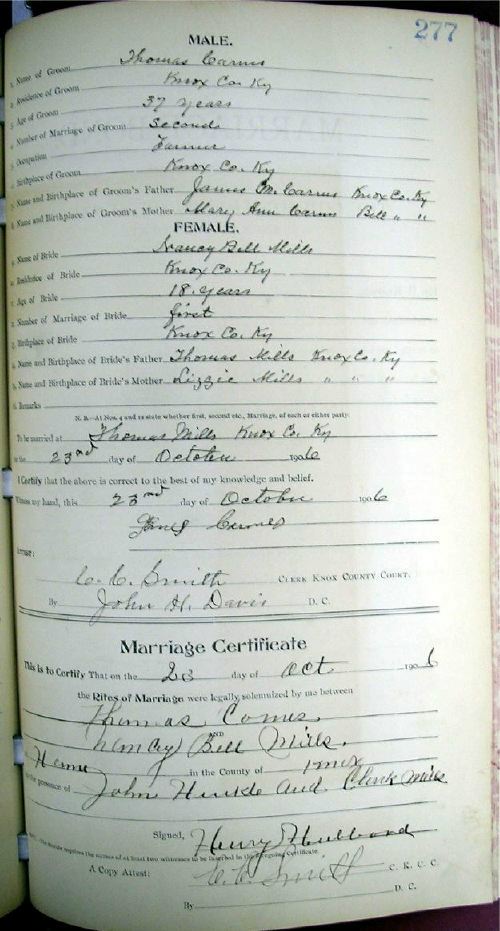 277
MALE.
1. Name of Groom Thomas Carnes
2. Residence of Groom Knox Co. Ky
3. Age of Groom 37 years
4. Number of Marriage of Groom Second
5. Occupation Farmer
6. Birthplace of Groom Knox Co. Ky
Name and Birthplace of Groom's Father James M. Carnes Knox Co. Ky
Name and Birthplace of Groom's Mother Mary Ann Carnes Bell " "
FEMALE,
Name of Bride Nancy Bell Mills
Residence of Bride Knox Co. Ky
Age of Bride 18 years
Number of Marriage of Bride first
Birthplace of Bride Knox Co. Ky
Name and Birthplace of Bride's Father Thomas Mills Knox Co. Ky
Name and Birthplace of Bride's Mother Lizzie Mills " " "
Remarks
N. B.—At Nos. 4 and 12 state whether first, second etc., Marriage, of each or either party.
To be married at Thomas Mills Knox Co. Ky
on the 23rd day of October 1906
I Certify that the above is correct to the best of my knowledge and belief.
Witness my hand, this 23rd day of October 1906
Carnes
Attest:
C. C. Smith CLERK KNOX COUNTY COURT.
By John H. Davis D. C.
Marriage Certificate
This is to Certify That on the 23 day of Oct 1906
the Rites of Marriage were legally solemnized by me between
Thomas Comes
AND
Nancy Bell Mills.
Home in the County of Knox
in the presence of John Hinkle and Clark Mills
Signed, Henry Hubbard
requires the names of at least two witnesses to be inserted in the foregoing Certificate.
A Copy Attest: C. C. Smith C. K. C. C.
By D. C.